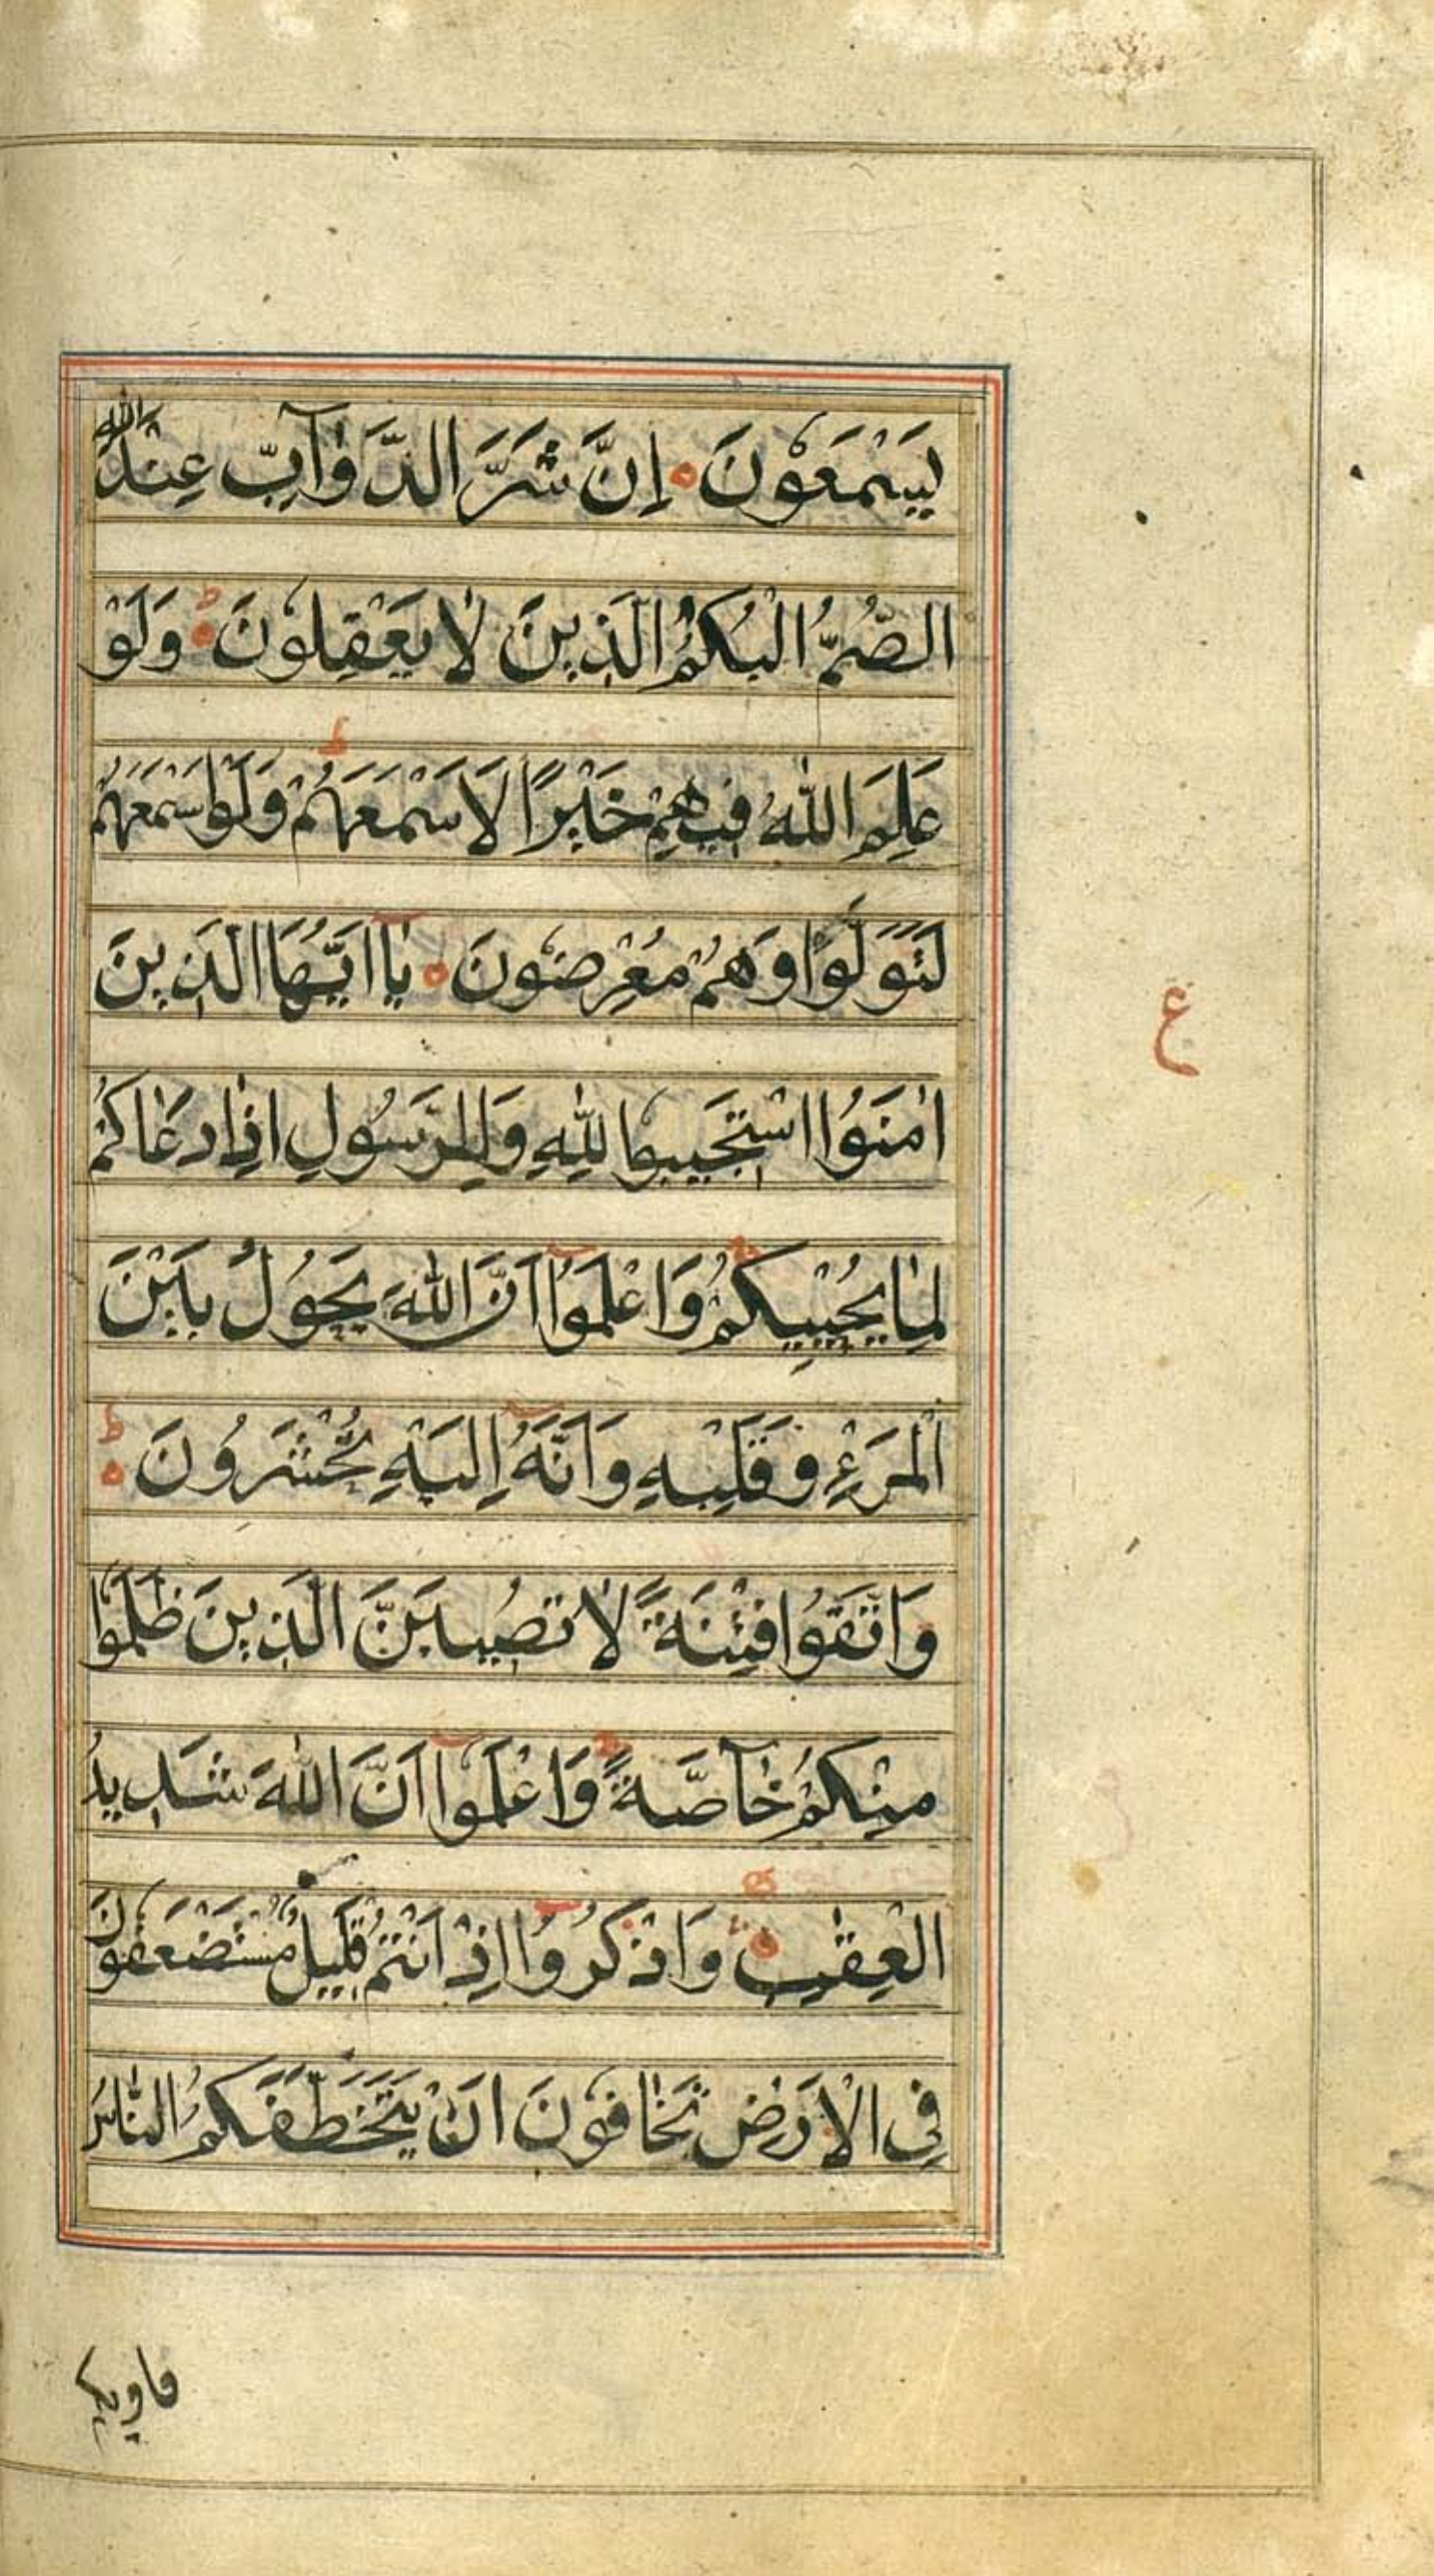 يَسْمَعُوْنَ ۝ اِنَّ شَرَّ الدَّوَآبِّ عِنْدَ اللّٰهِ
الصُّمُّ الْبُكْمُ الَّذِينَ لَا يَعْقِلُوْنَ ۝ ط وَلَوْ
عَلِمَ اللّٰهُ فِيهِمْ خَيْرًا لَاَسْمَعَهُمْ ط وَلَوْ اَسْمَعَهُمْ
لَتَوَلَّوْا وَهُمْ مُعْرِضُوْنَ ۝ يٰٓا اَيُّهَا الَّذِينَ
ع
اٰمَنُوا اسْتَجِيبُوا لِلّٰهِ وَلِلرَّسُولِ اِذَا دَعَاكُمْ
لِمَا يُحْيِيكُمْ وَاعْلَمُوْٓا اَنَّ اللّٰهَ يَحُوْلُ بَيْنَ
الْمَرْءِ وَقَلْبِهِ وَاَنَّهُ اِلَيْهِ تُحْشَرُونَ ۝ ط
وَاتَّقُوا فِتْنَةً لَا تُصِيبَنَّ الَّذِينَ ظَلَمُوْا
مِنْكُمْ خَآصَّةً وَاعْلَمُوْٓا اَنَّ اللّٰهَ شَدِيدُ
الْعِقٰبِ ۝ وَاذْكُرُوْٓا اِذْ اَنْتُمْ قَلِيلٌ مُسْتَضْعَفُوْنَ
فِى الْاَرْضِ تَخَافُوْنَ اَنْ يَتَخَطَّفَكُمُ النَّاسُ
فاويكم